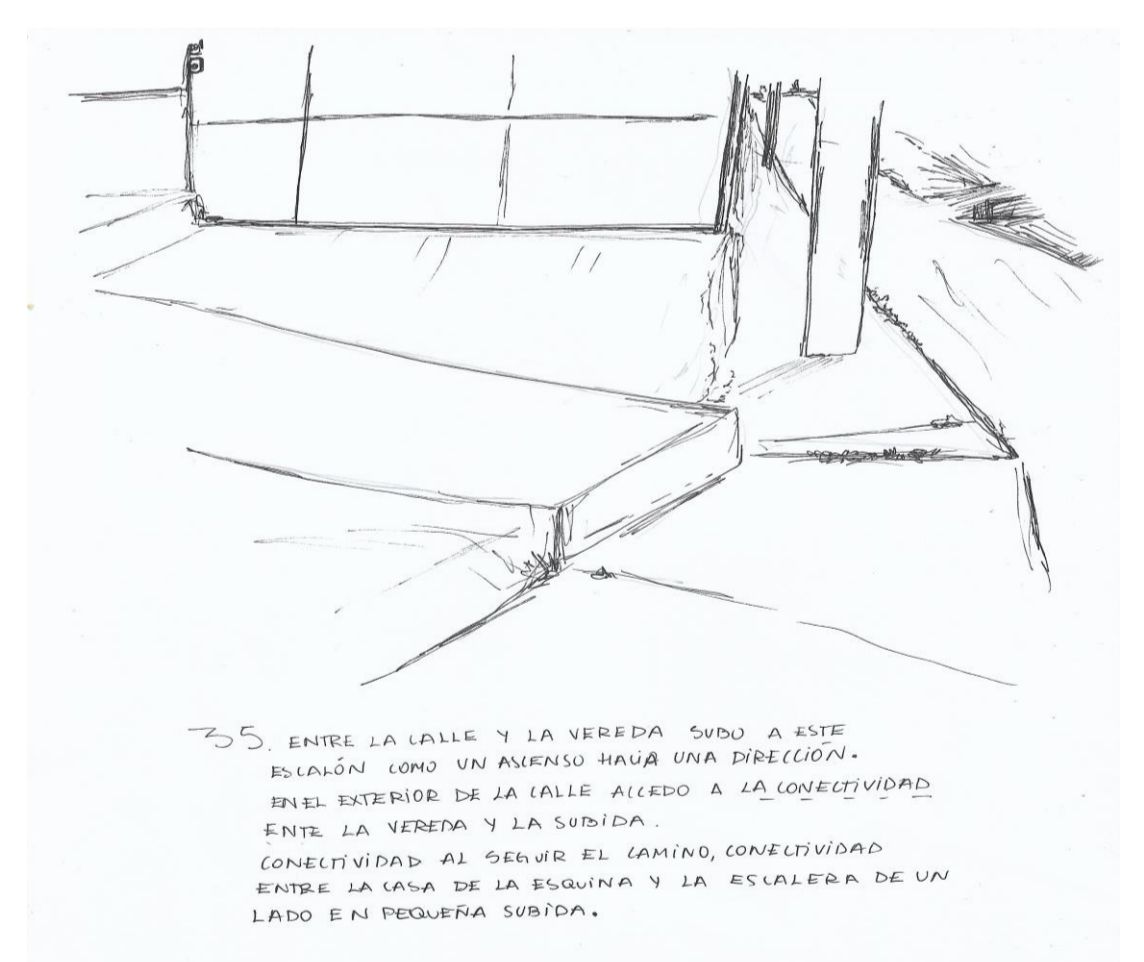 35. ENTRE LA CALLE Y LA VEREDA SUBO A ESTE
ESCALÓN COMO UN ASCENSO HACIA UNA DIRECCIÓN.
EN EL EXTERIOR DE LA CALLE ACCEDO A LA CONECTIVIDAD
ENTE LA VEREDA Y LA SUBIDA.
CONECTIVIDAD AL SEGUIR EL CAMINO, CONECTIVIDAD
ENTRE LA CASA DE LA ESQUINA Y LA ESCALERA DE UN
LADO EN PEQUEÑA SUBIDA.